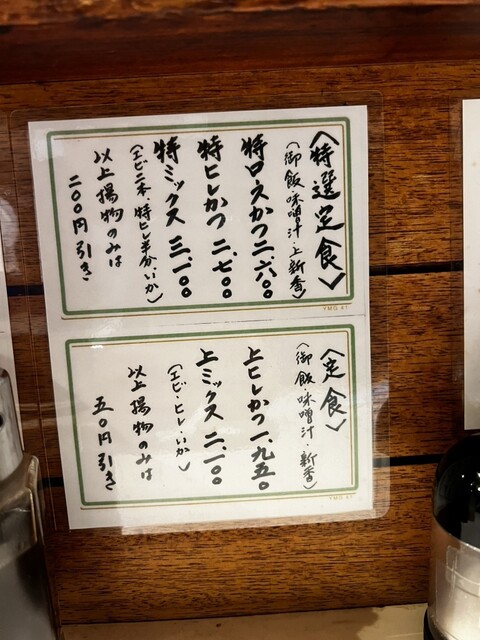 〈特選定食〉
(御飯・味噌汁・上新香)
特ロースかつ 二、六〇〇
特ヒレかつ 二、七〇〇
特ミックス 三、一〇〇
(エビ二本・特ヒレ半分・いか)
以上揚物のみは
二〇〇円引き
YMG #7
〈定食〉
(御飯・味噌汁・新香)
上ヒレかつ 一、九五〇
上ミックス 二、一〇〇
(エビ・ヒレ・いか)
以上揚物のみは
五〇円引き
YMG #7